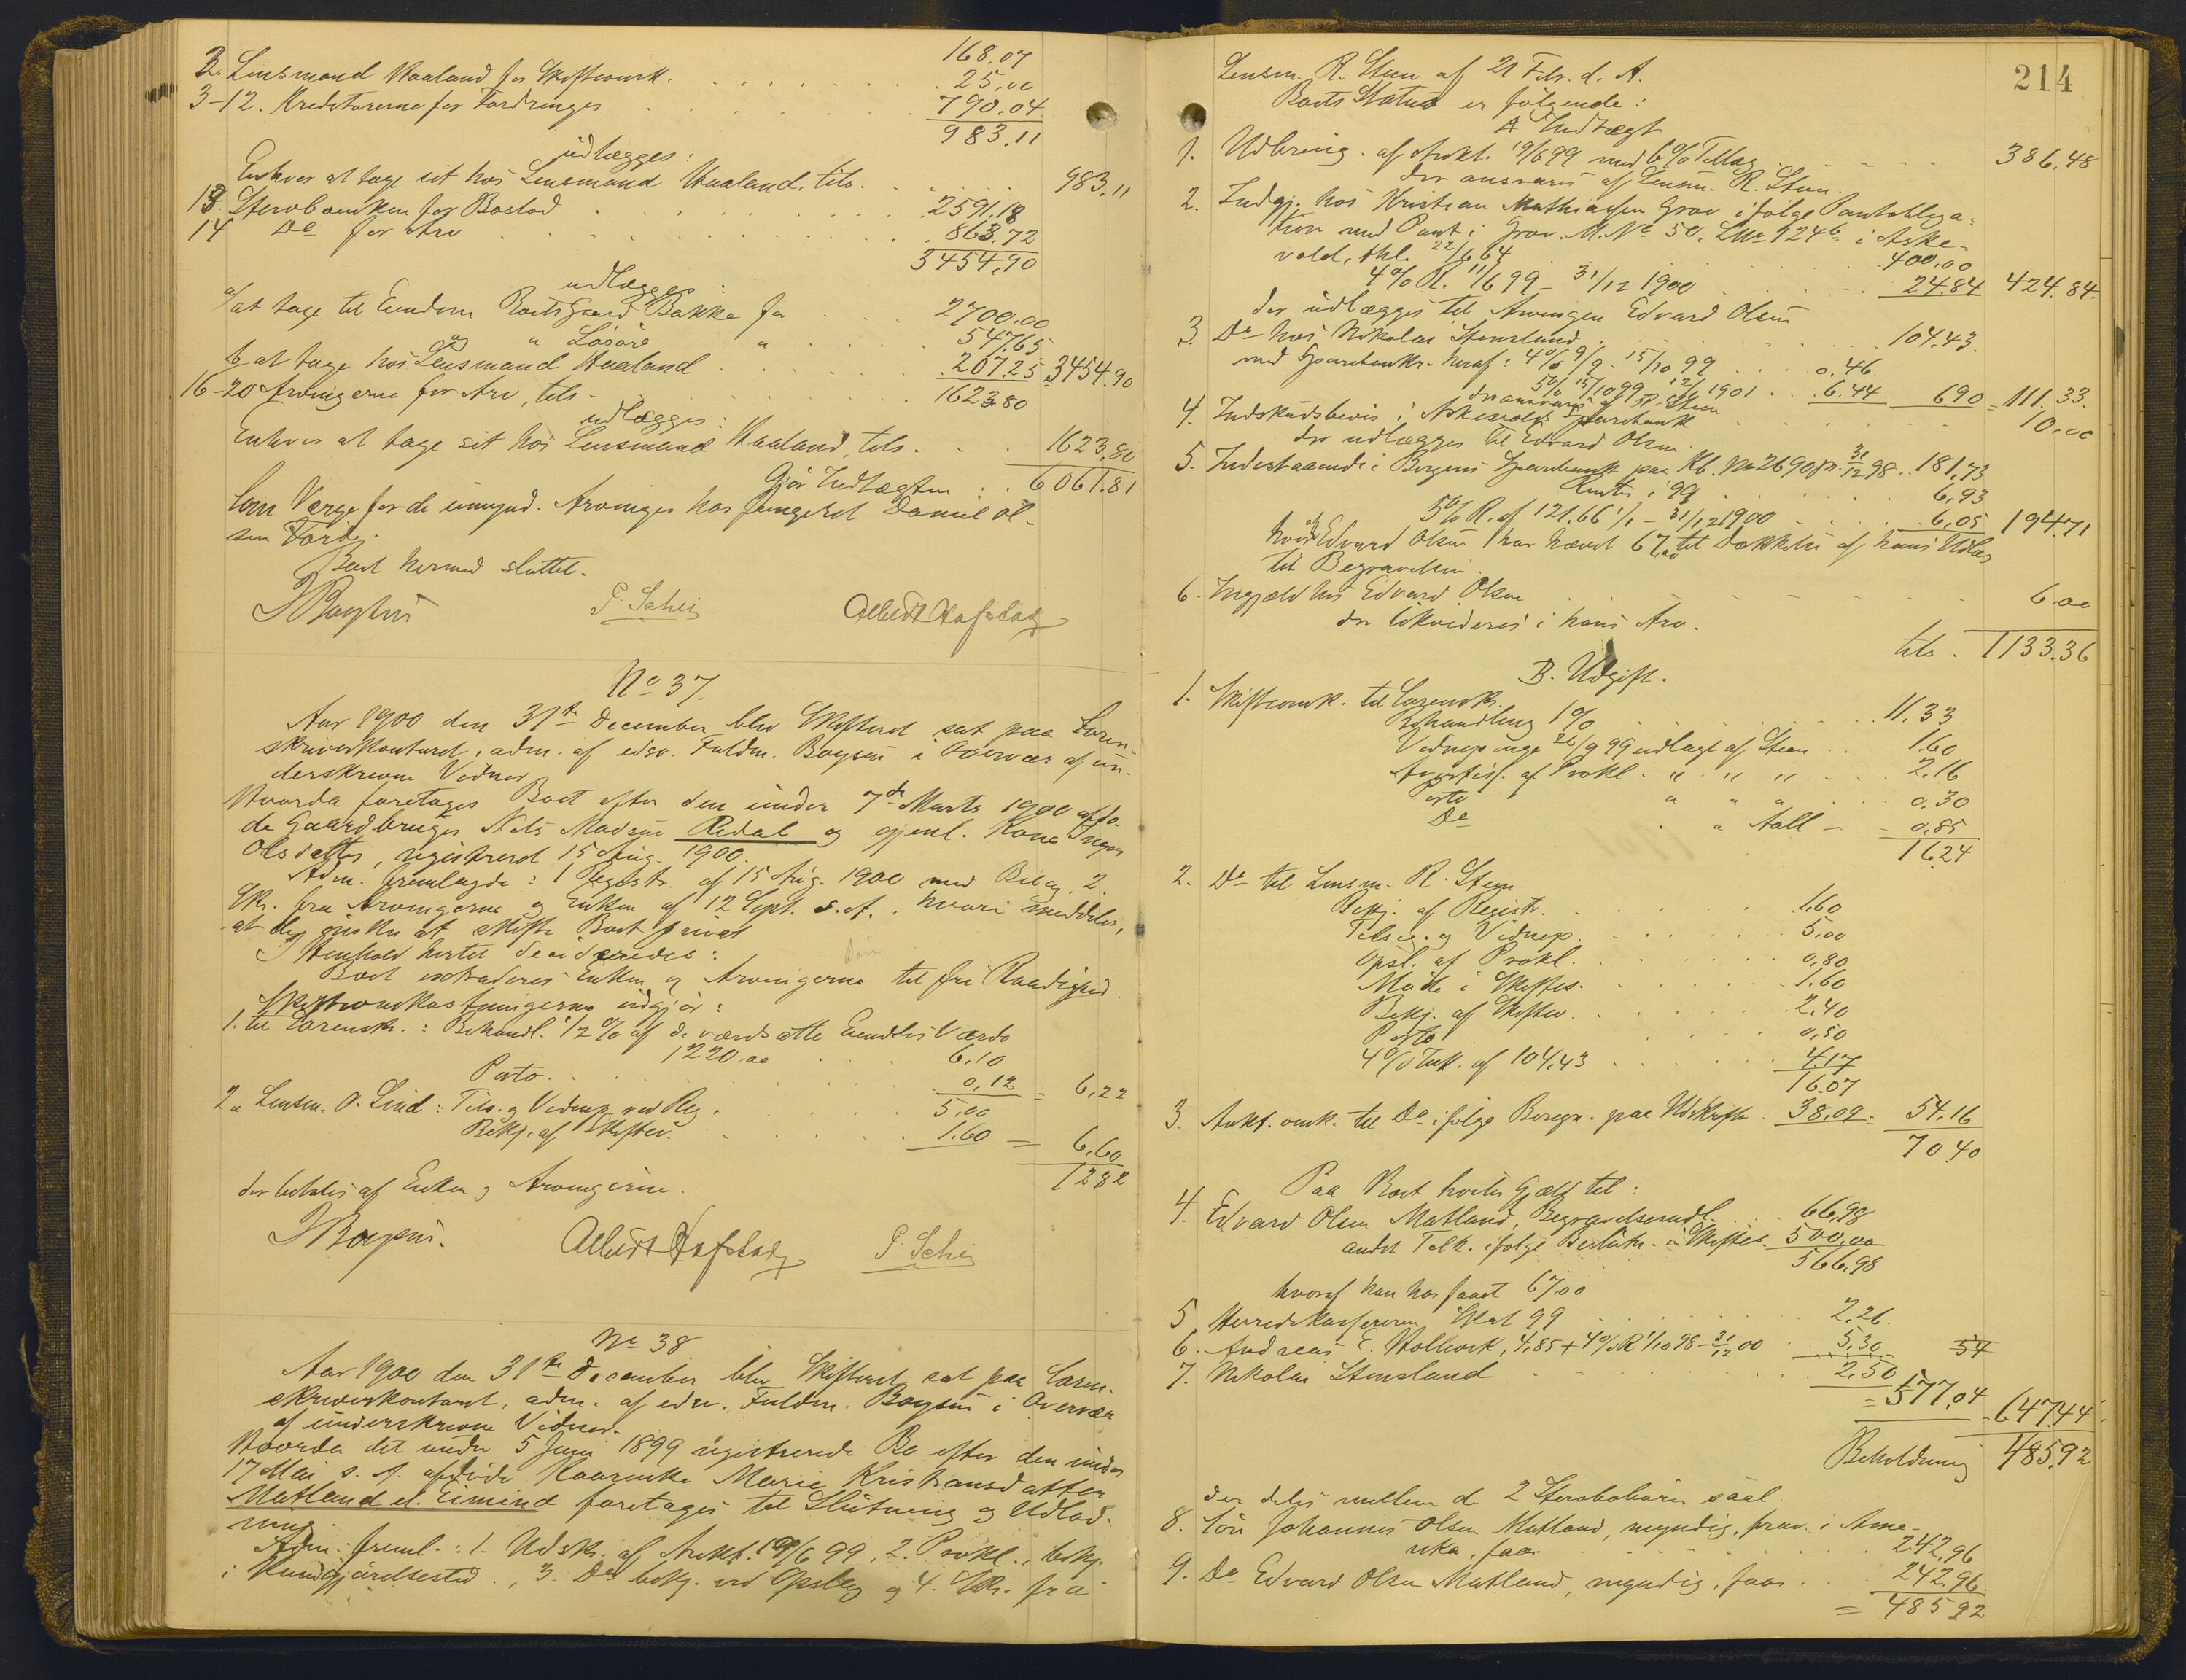 168.07
2. Lensmand Haaland for Skifteomk. 25,00
3-12. Kreditorerne for Fordringer 790.04
983.11
udlægges:
Enhver at tage sit hos Lensmand Haaland, tils. 983,11
13. Stervboenken for Boslod 2591.18
14 Do for Arv 863.72
3454,90
udlægges:
a/ at tage til Eiendom Boets Gaard Bakke for 2700,00
" Løsøre " 547,65
b at tage hos Lensmand Haaland 207.25 = 3454.90
16-20 Arvingerne for Arv, tils. 1623,80
udlægges:
Enhver at tage sit hos Lensmand Haaland, tils. 1623,80
Gjør Indtægten 6061.81
Som Verge for de umynd. Arvinger har fungeret Daniel Ol-
sen Førde.
Boet hermed sluttet.
J Boysen P. Schei Albert Hafstad

No 37.
Aar 1900 den 31te December blev Skifteret sat paa Soren-
skriverkontoret, adm. af edsv. Fuldm. Boysen i Overvær af un-
derskrevne Vidner
Hvorda foretoges Boet efter den under 7de Marts 1900 afdø-
de Gaardbruger Nils Madsen Redal og gjenl. Kone Inger
Olsdatter, registreret 15 Aug. 1900.
Adm. fremlagde: 1 Registr. af 15 Aug. 1900 med Bilag, 2.
Skr. fra Arvingerne og Enken af 12 Sept. s. A., hvori meddeles,
at de ønsker at skifte Boet privat
I Henhold hertil decideredes:
Boet extraderes Enken og Arvingerne til fri Raadighed.
Skifteomkostningerne udgjør:
1. til Sorensk.: Behandl. 1/2 % af de værdsatte Eiendeles Værdi
1220.00 6.10
Porto 0,12 = 6,22
2. Lensm. O. Lind: Tils. og Vidnep. ved Reg. 5,00
Bekj. af Skiftev. 1.60 = 6,60
1282
der betales af Enken og Arvingerne.
J Boysen. Albert Hafstad P. Schei

No 38.
Aar 1900 den 31te December blev Skifteret sat paa Soren-
skriverkontoret, adm. af edsv. Fuldm. Boysen i Overvær
af underskrevne Vidner.
Hvorda det under 5 Juni 1899 registrerede Bo efter den under
17 Mai s. A. afdøde Kaarenke Marie Kristiansdatter
Matland el. Eimind foretages til Slutning og Udlod-
ning.
Adm. freml.: 1. Udskr. af Aukt. 19/6 99, 2. Prokl., bekj.
i Kundgjørelsestid., 3. Do bekj. ved Opslag og 4. Skr. fra

214
Lensm. R. Steen af 21 Febr. d. A.
Boets Status er følgende:
A Indtægt
1. Udbring. af Aukt. 19/6 99 med 6% Tillæg 386.48
der ansvares af Lensm. R. Steen.
2. Indgj. hos Kristian Mathiassen Grov ifølge Pantobliga-
tion med Pant i Grov. M. No 50. L No 124b i Aske-
vold, thl. 22/6 64 400,00
4% R. 11/6 99 - 31/12 1900 24.84 424.84.
der udlægges til Arvingen Edvard Olsen
3. Do hos Nikolai Stensland 104.43.
med Sparebankr. heraf: 4% 9/9 - 15/10 99 0.46
5% 15/10 99 - 12/1 1901 6.44 690 = 111.33.
der ansvares af R. Steen
4. Indskudsbevis i Askevolds Sparebank 10,00
der udlægges til Edvard Olsen.
5. Indestaaende i Bergens Sparebank paa Kb. No 26908 pr. 31/12 98 181,73
Renter i 99 6,93
5% R. af 121.66 1/1 - 31/12 1900 6,05 194.71
hvoraf Edvard Olsen har hævet 67,00 til Dækkelse af hans Udlæg
til Begravelsen.
6. Indgjæld hos Edvard Olsen 6.00
der likvideres i hans Arv.
tils. 1133.36
B. Udgift.
1. Skifteomk. til Sorensk.
Behandling 1% 11.33
Vidnepenge 26/9 99 udlagt af Steen 1.60
Avertiss. af Prokl. " " " 2.16
Porto " " " 0.30
Do " Aall 0.85
1624
2. Do til Lensm. R. Steen
Bekj. af Registr. 1.60
Tilsig. og Vidnep. 5,00
Opsl. af Prokl. 0,80
Møde i Skiftes. 1.60
Bekj. af Skiftev. 2,40
Porto 0,50
4% Ink. af 104,43 4.17
16.07
3. Aukt. omk. til Do ifølge Beregn. paa Udskrift 38,09 = 54,16
70.40
Paa Boet hviler Gjæld til:
4. Edvard Olsen Matland, Begravelsesudl. 66,98
andet Tilk. ifølge Beslutn. i Skiftes. 500,00
566,98
hvoraf han har faaet 67.00
5 Herredskassereren Skat 99 2.26.
6. Andreas E. Holkvik, 4,85 + 4% R 1/10 98 - 31/12 00 5,30
7. Nikolai Stensland 2,50
= 577,04 = 647.44
Beholdning 485,92
der deles mellem de 2 Stervbobørn saal.
8. Søn Johannes Olsen Matland, myndig, frav. i Ame-
rika, faar 242,96
9. Do Edvard Olsen Matland, myndig, faar 242,96
= 485 92